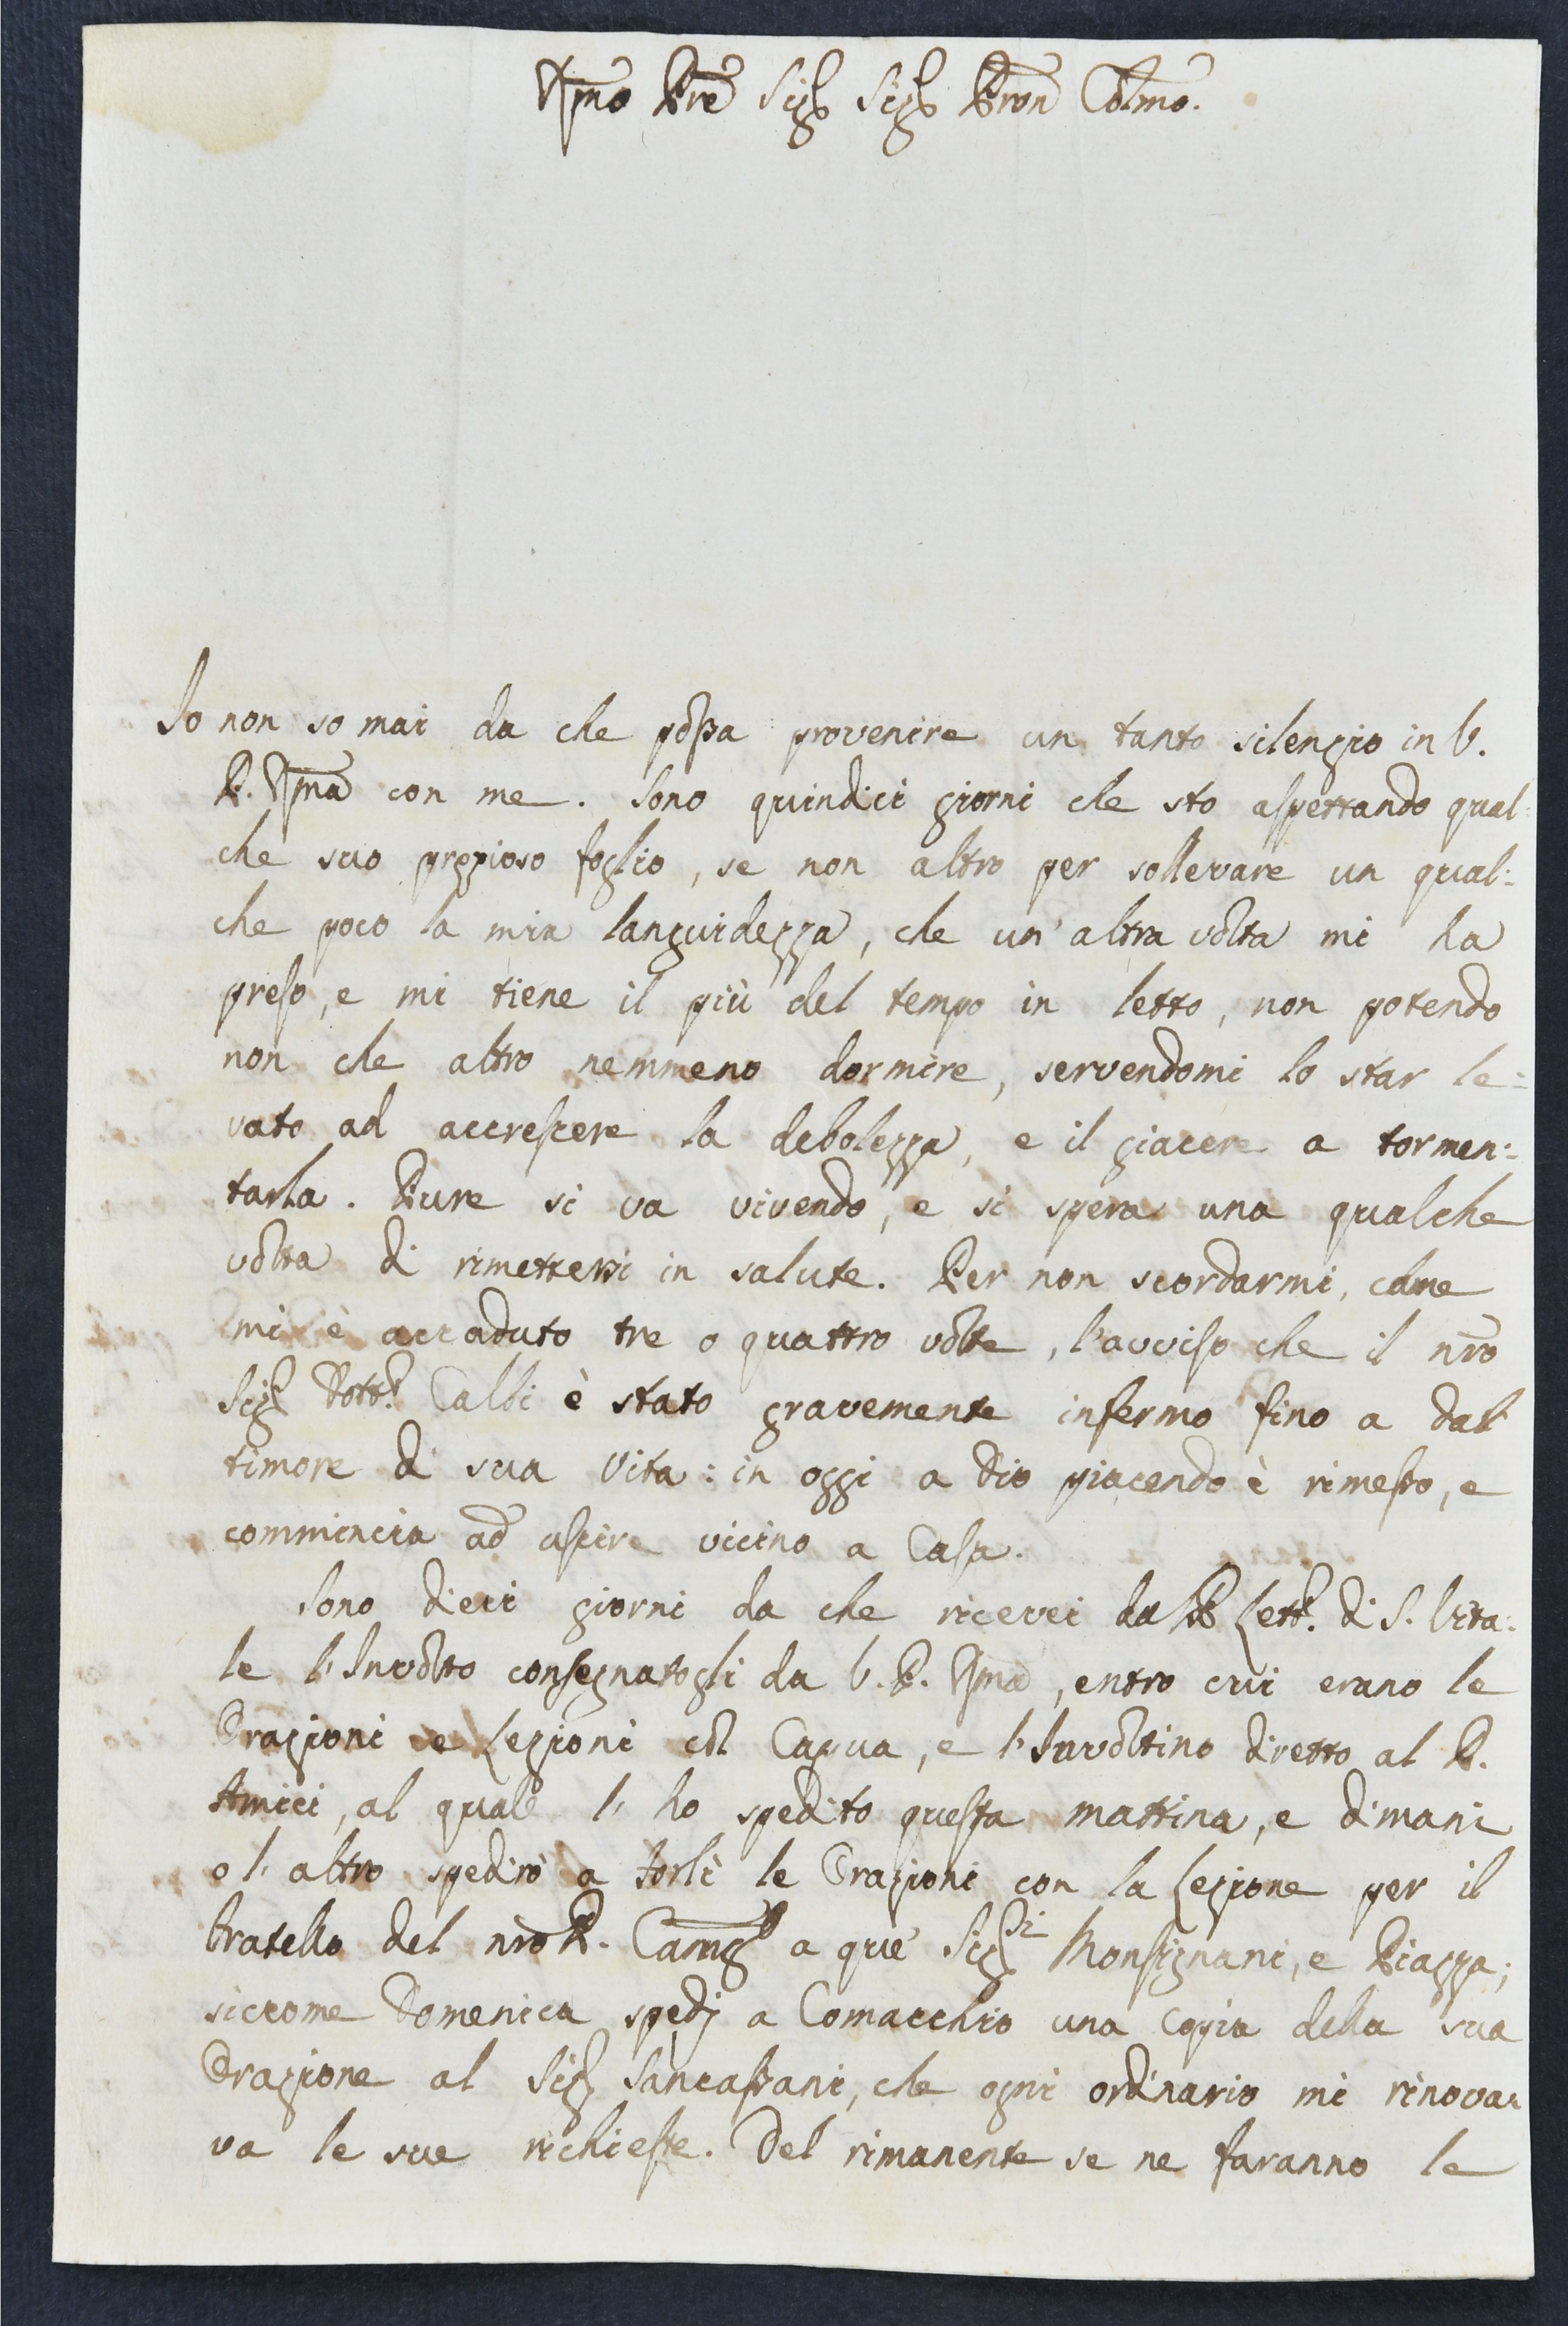 Rmo Pre Sigr Sigr Pron Colmo.
Io non so mai da che possa provenire un tanto silenzio in V.
P. Rma con me. Sono quindici giorni che sto aspettando qual=
che suo prezioso foglio, se non altro per sollevare un qual=
che poco la mia languidezza, che un' altra volta mi ha
preso, e mi tiene il più del tempo in letto, non potendo
non che altro nemmeno dormire, servendomi lo star le=
vato ad accrescere la debolezza, e il giacere a tormen=
tarla. Pure si va vivendo, e si spera una qualche
volta di rimettersi in salute. Per non scordarmi, come
mi è accaduto tre o quattro volte, l'avviso che il nro
Sigr Dottr. Calbi è stato gravemente infermo fino a dar
timore di sua Vita: in oggi a Dio piacendo è rimesso, e
commincia ad uscire vicino a Casa.
Sono dieci giorni da che ricevei dal P. Lettr. di S. Vita=
le l'Involto consegnatogli da V. P. Rma, entro cui erano le
Orazioni e Lezioni col Capua, e l'Involtino diretto al P.
Amici, al quale l' ho spedito questa mattina, e dimani
o l' altro spedirò a Forlì le Orazioni con la Lezione per il
Fratello del nro P. Camgo a que' Sigri Monsignani, e Piazza;
siccome Domenica spedj a Comacchio una Copia della sua
Orazione al Sigr Sancassani, che ogni ordinario mi rinova=
va le sue richieste. Del rimanente se ne faranno le